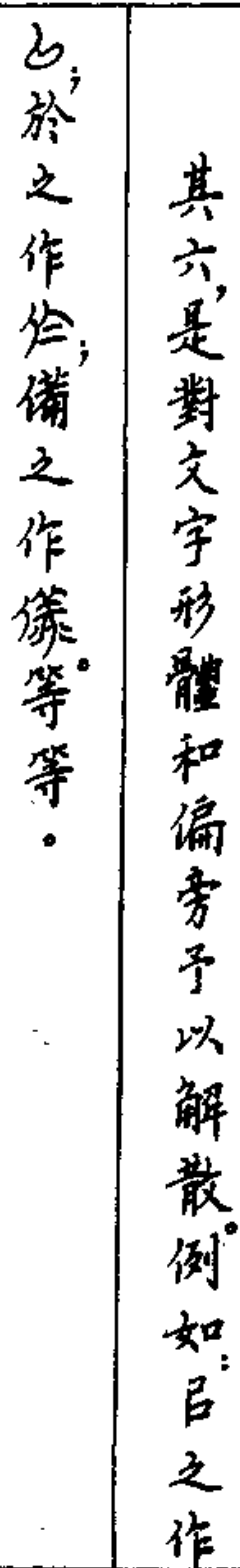 其六，是對文字形體和偏旁予以解散。例如：㠯之作
；於之作；備之作。等等。